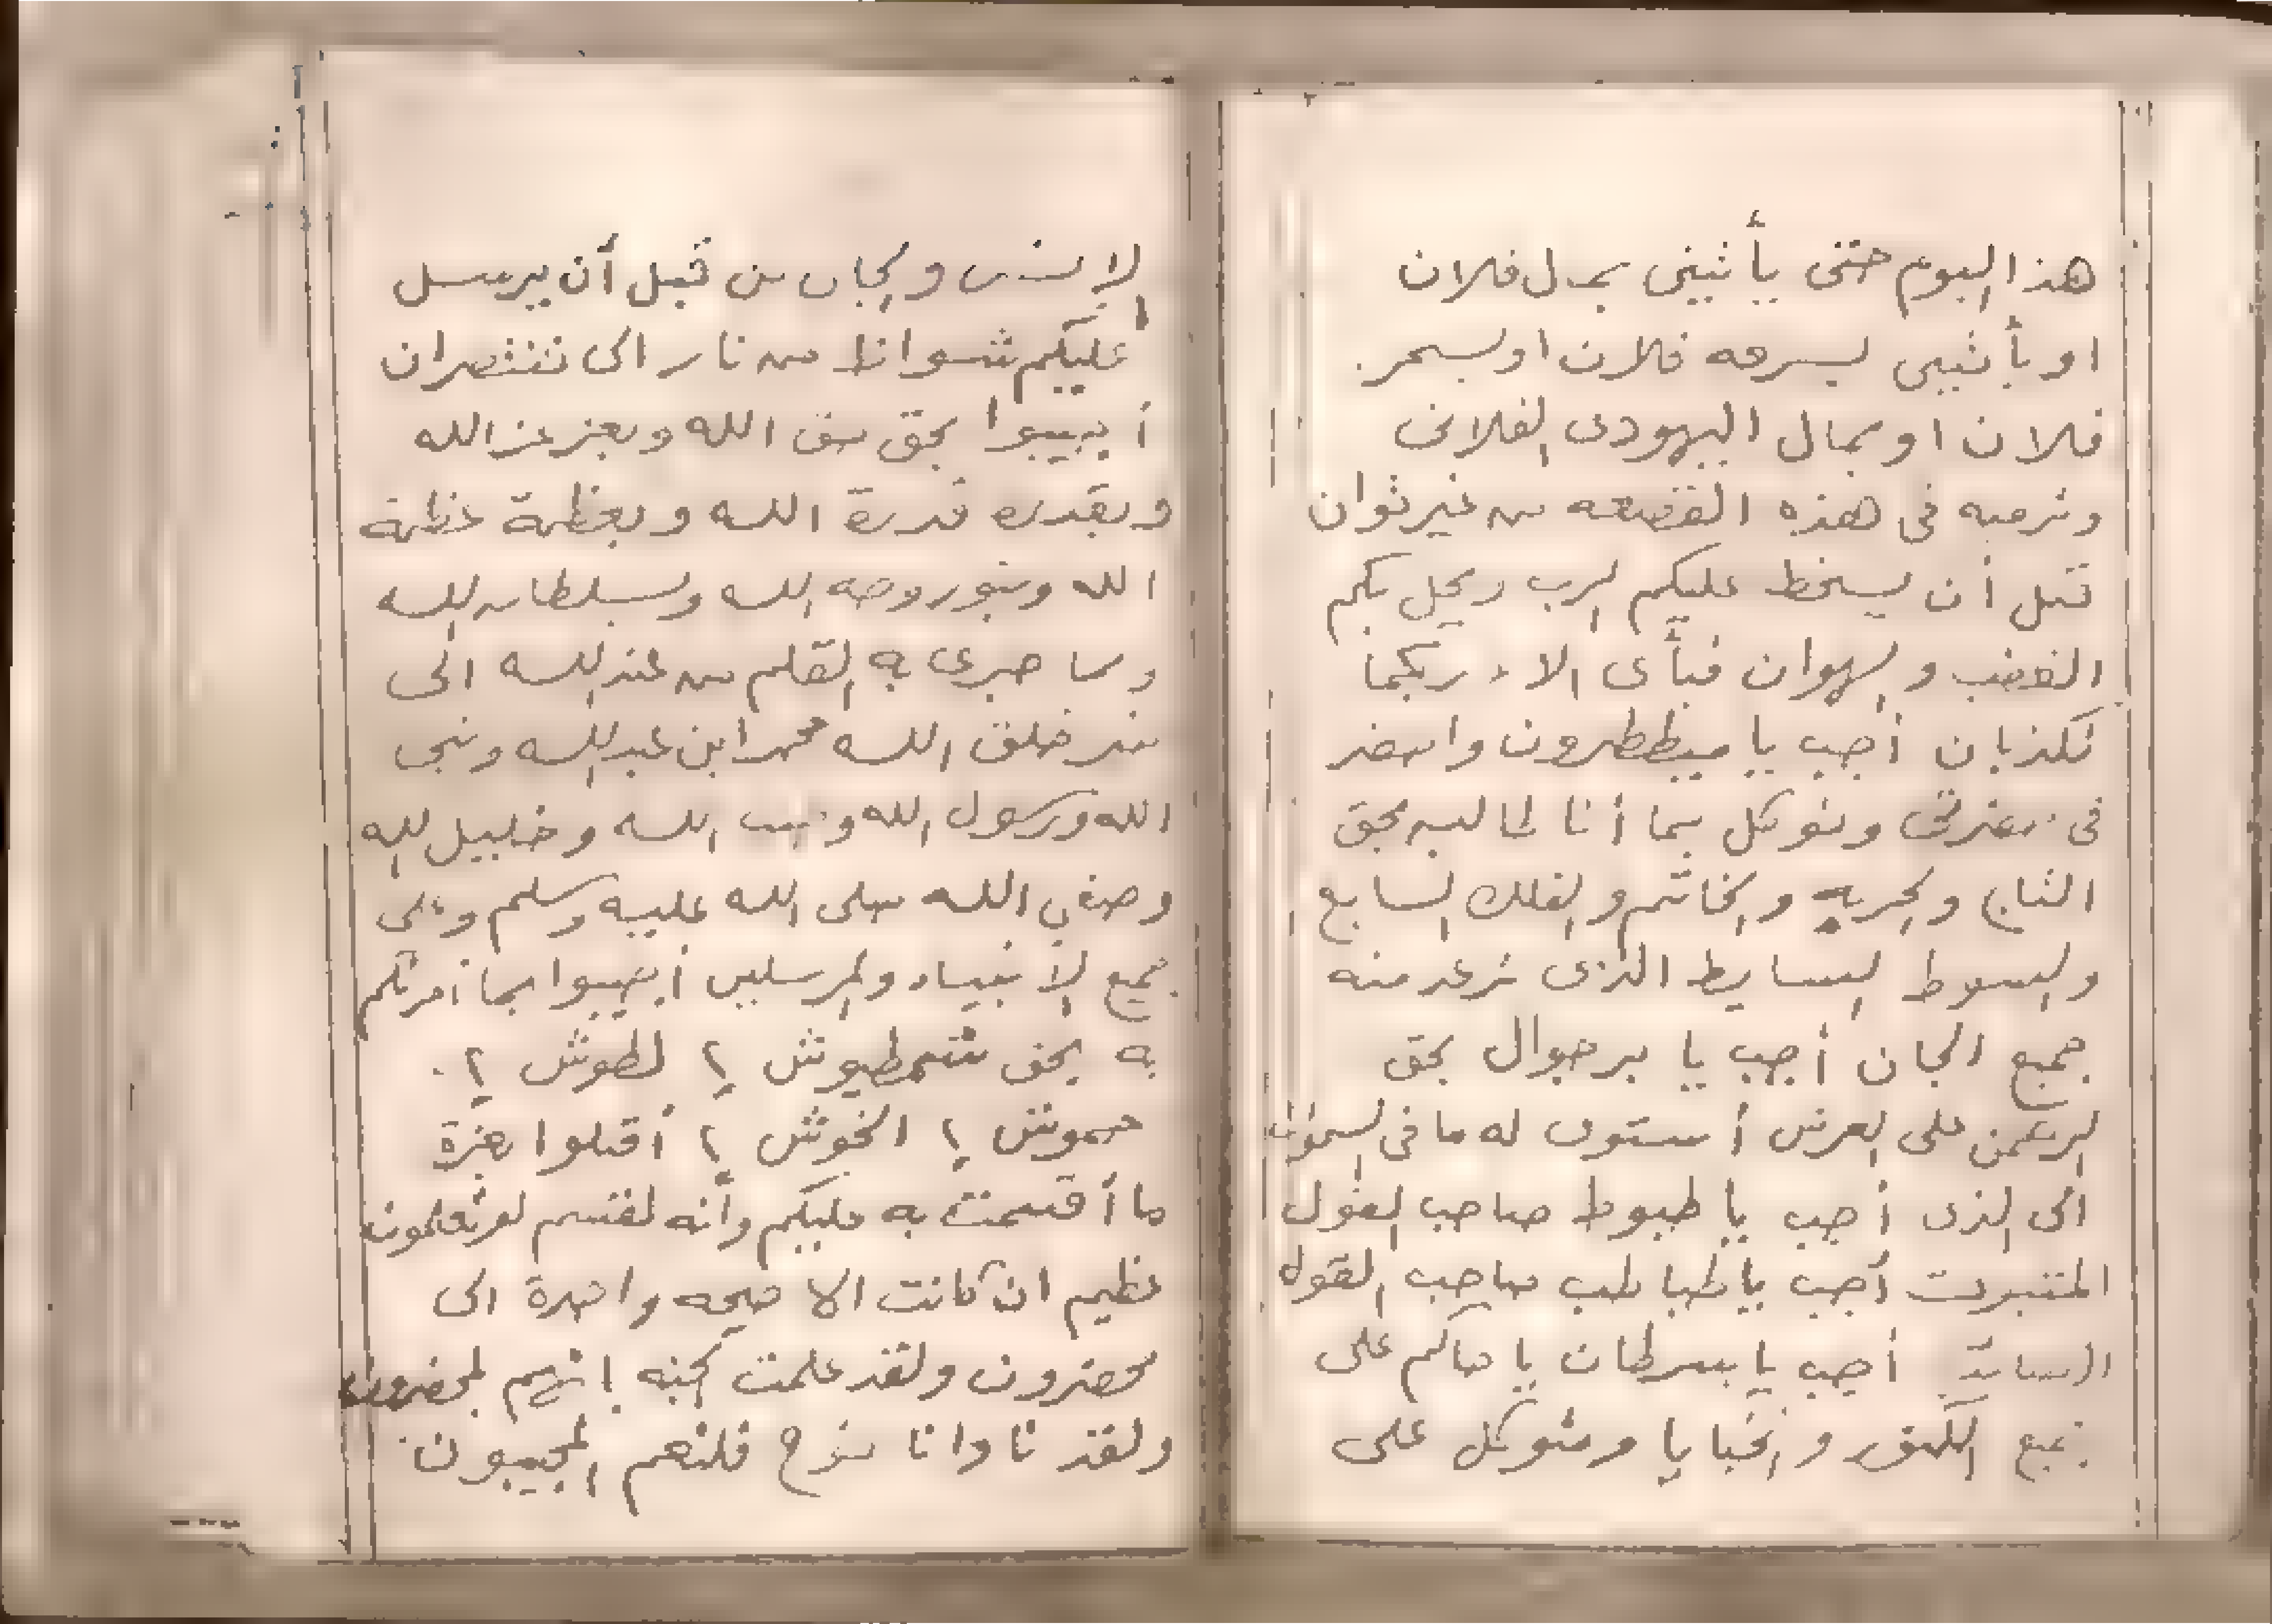 هذا اليوم حتى يأتيني بمال فلان
او يأتيني بسرقه فلان او بسحر
فلان او بمال اليهودى الفلانى
وترميه فى هذه القصعه من غير توان
قبل أن يسخط عليكم الرب ويحل بكم
الغضب والهوان فبأى الاء ربكما
تكذبان أجب يا ميططرون واحضر
فى حضرتى وتوكل بما أنا طالبه بحق
التاج والحربه والخاتم والفلك السابع
والسوط البسايط الذى ترعد منه
جميع الجان أجب يا برجوال بحق
الرحمن على العرش أستوى له ما فى السموات
الى الذى أجب يا طيوط صاحب الغول
أجب يا طبا طب صاحب القوه
أجب يا سرطان يا حاكم على
جميع الكنوز والخبايا ومتوكل على
الإنس والجان من قبل أن يرسل
عليكم شواظ من نار الى تنتصران
أجيبوا بحق حق الله وبعز عز الله
وبقدرة قدرة الله وبعظمة عظمة
الله وبنور وجه الله وبسلطان الله
وبما جرى به القلم من عند الله الى
خلق الله محمد ابن عبد الله ونجى
الله ورسول الله الله وخليل الله
وصفي الله صلى الله عليه وسلم وعلى
جميع الأنبياء والمرسلين أجيبوا بما أمرتكم
به بحق شمطيوش ٢ لطوش ٢
حموش ٢ الخوش ٢ أقبلوا بعزة
ما أقسمت به عليكم وأنه لقسم لو تعلمون
عظيم ان كانت الا صيحه واحدة الى
محضرون ولقد علمت الجنه إنهم لمحضرون
ولقد نادانا نوح فلنعم المجيبون